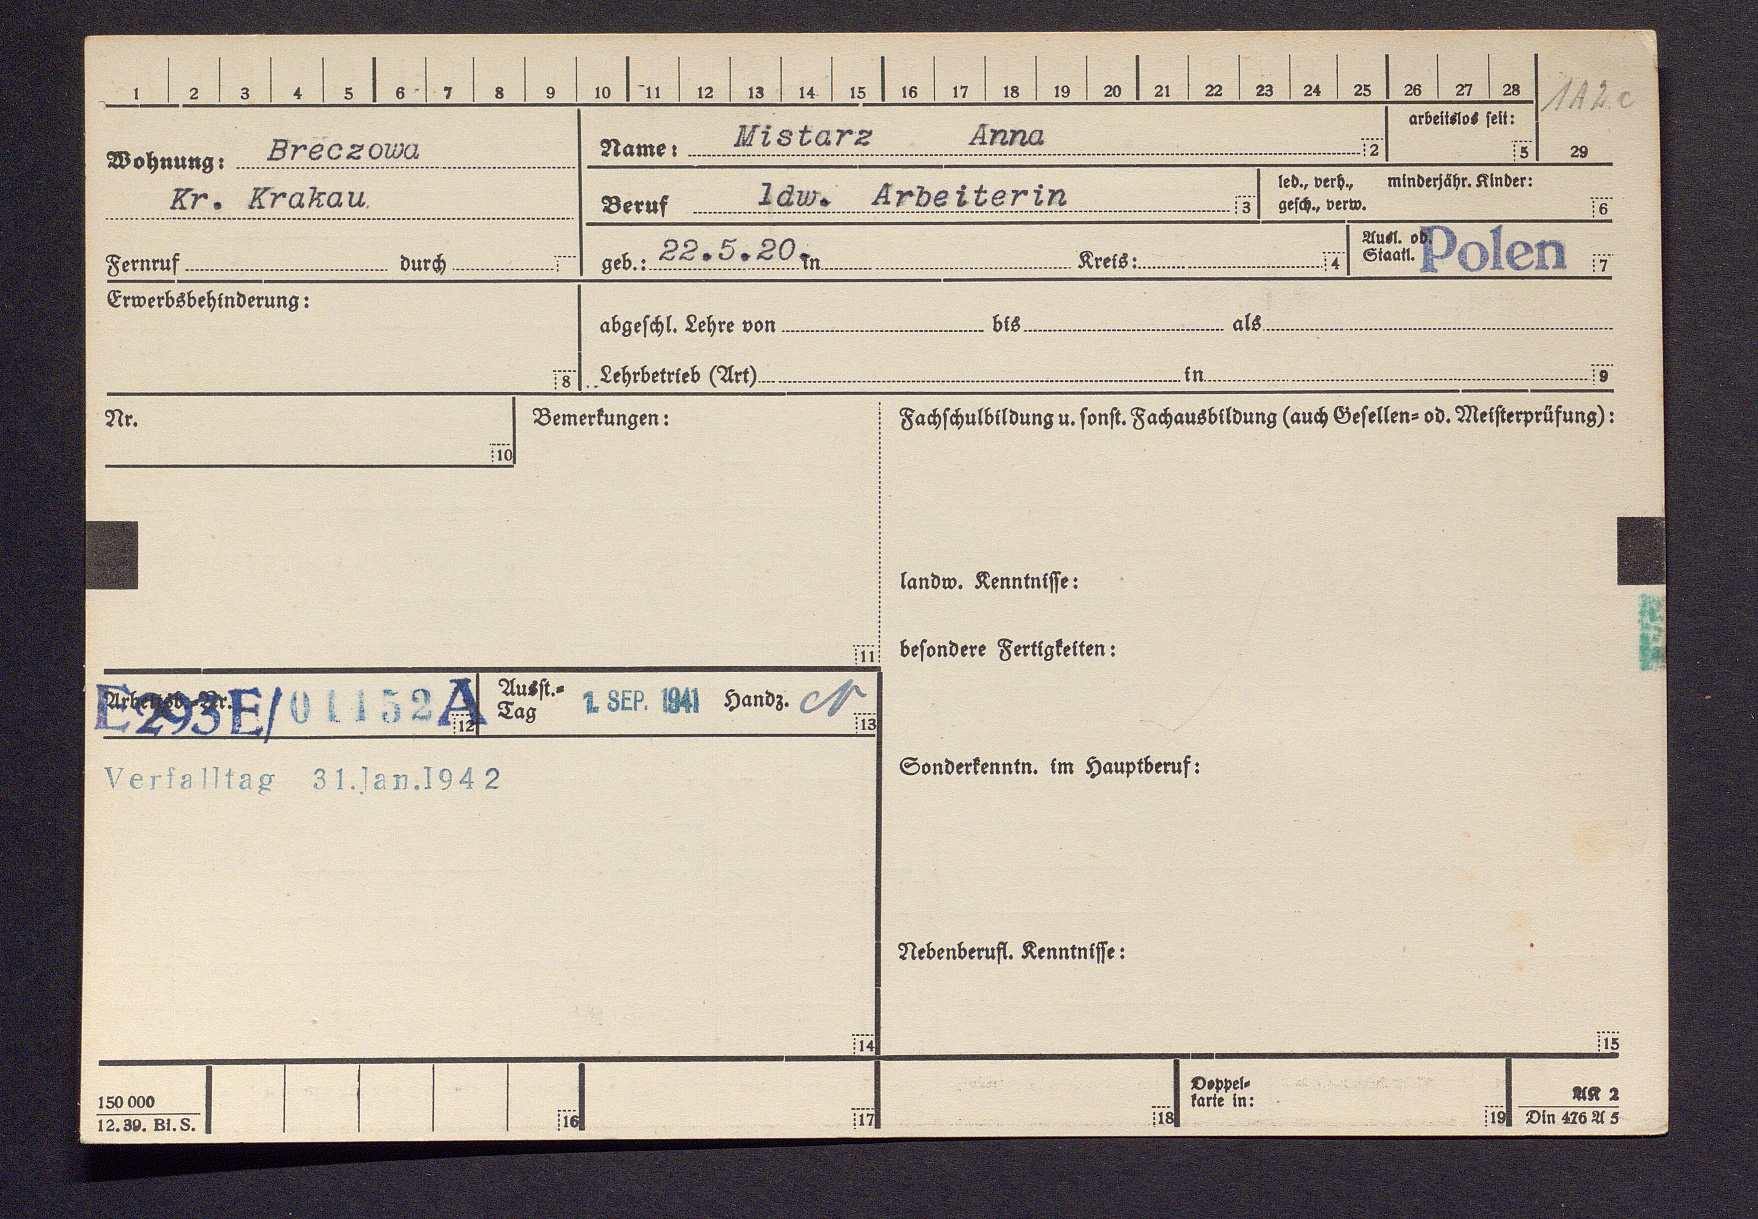 1 2 3 4 5 6 7 8 9 10 11 12 13 14 15 16 17 18 19 20 21 22 23 24 25 26 27 28
1A2c
Wohnung: Breczowa
Kr. Krakau
Fernruf durch
Name: Mistarz Anna 2
arbeitslos seit:
5
29
Beruf ldw. Arbeiterin 3
led., verh., minderjähr. Kinder:
gesch., verw. 6
geb.: 22.5.20. in Kreis: 4
Ausl. od.
Staatl. Polen 7
Erwerbsbehinderung:
8
abgeschl. Lehre von bis als
Lehrbetrieb (Art) in 9
Nr.
10
Bemerkungen:
11
Fachschulbildung u. sonst. Fachausbildung (auch Gesellen- od. Meisterprüfung):
landw. Kenntnisse:
besondere Fertigkeiten:
Arbeitsb.-Nr.
E293E/01152A 12
Ausst.-
Tag 1. SEP. 1941 Handz. 13
Verfalltag 31.Jan.1942
Sonderkenntn. im Hauptberuf:
Nebenberufl. Kenntnisse:
14
15
150 000
12.39. Bl. S.
16
17
18
Doppel-
karte in:
19
AK 2
Din 476 A 5